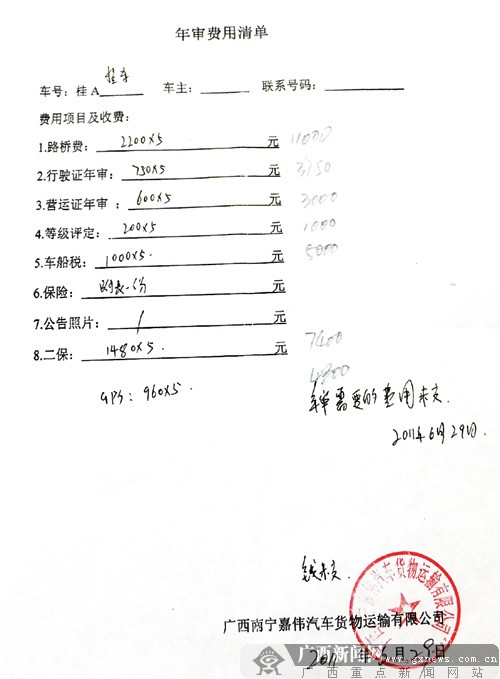 年审费用清单
挂车
车号：桂A 车主： 联系号码：
费用项目及收费：
1.路桥费： 2200×5 元 11000
2.行驶证年审： 750×5 元 3750
3.营运证年审： 600×5 元 3000
4.等级评定： 200×5 元 1000
5.车船税： 1000×5 元 5000
6.保险： 附表一份 元
7.公告照片： / 元
8.二保： 1480×5 元 7400
GPS：960×5 4800
年审需要的费用未交.
2011年6月29日.
钱未交.
广西南宁嘉伟汽车货物运输有限公司
2011年6月29日
广西新闻网 www.gxnews.com.cn
广西重点新闻网站